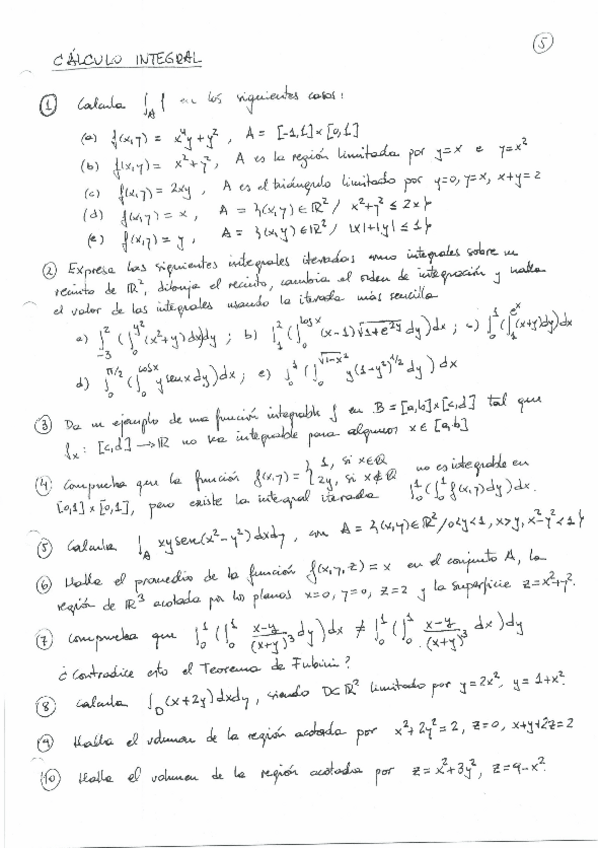 5
CÁLCULO INTEGRAL
① Calcula ∫_A f en los siguientes casos:
(a) f(x,y) = x⁴y + y², A = [-1,1]×[0,1]
(b) f(x,y) = x² + y², A es la región limitada por y=x e y=x²
(c) f(x,y) = 2xy, A es el triángulo limitado por y=0, y=x, x+y=2
(d) f(x,y) = x, A = {(x,y)∈ℝ² / x²+y² ≤ 2x}
(e) f(x,y) = y, A = {(x,y)∈ℝ² / |x|+|y| ≤ 1}
② Expresa las siguientes integrales iteradas como integrales sobre un
recinto de ℝ², dibuja el recinto, cambia el orden de integración y halla
el valor de las integrales usando la iterada más sencilla
a) ∫_{-3}^{2} (∫_0^{y²} (x²+y)dx)dy ; b) ∫_1^2 (∫_0^{log x} (x-1)√(1+e^{2y}) dy)dx ; c) ∫_0^1 (∫_1^{e^x} (x+y)dy)dx
d) ∫_0^{π/2} (∫_0^{cos x} y sen x dy)dx ; e) ∫_0^1 (∫_0^{√(1-x²)} y(1-y²)^{1/2} dy) dx
③ Da un ejemplo de una función integrable f en B = [a,b]×[c,d] tal que
f_x : [c,d] → ℝ no sea integrable para algunos x∈[a,b]
④ Comprueba que la función f(x,y) = {1, si x∈ℚ 2y, si x∉ℚ no es integrable en
[0,1]×[0,1], pero existe la integral iterada ∫_0^1 (∫_0^1 f(x,y)dy)dx.
⑤ Calcula ∫_A xy sen(x²-y²)dxdy, con A = {(x,y)∈ℝ² / 0<y<1, x>y, x²-y²<1}
⑥ Halla el promedio de la función f(x,y,z) = x en el conjunto A, la
región de ℝ³ acotada por los planos x=0, y=0, z=2 y la superficie z=x²+y².
⑦ Comprueba que ∫_0^1 (∫_0^1 (x-y)/(x+y)³ dy)dx ≠ ∫_0^1 (∫_0^1 (x-y)/(x+y)³ dx)dy
¿Contradice esto el Teorema de Fubini?
⑧ Calcula ∫_D (x+2y)dxdy, siendo D⊂ℝ² limitado por y=2x², y=1+x².
⑨ Halla el volumen de la región acotada por x²+2y²=2, z=0, x+y+2z=2
⑩ Halla el volumen de la región acotada por z=x²+3y², z=9-x².